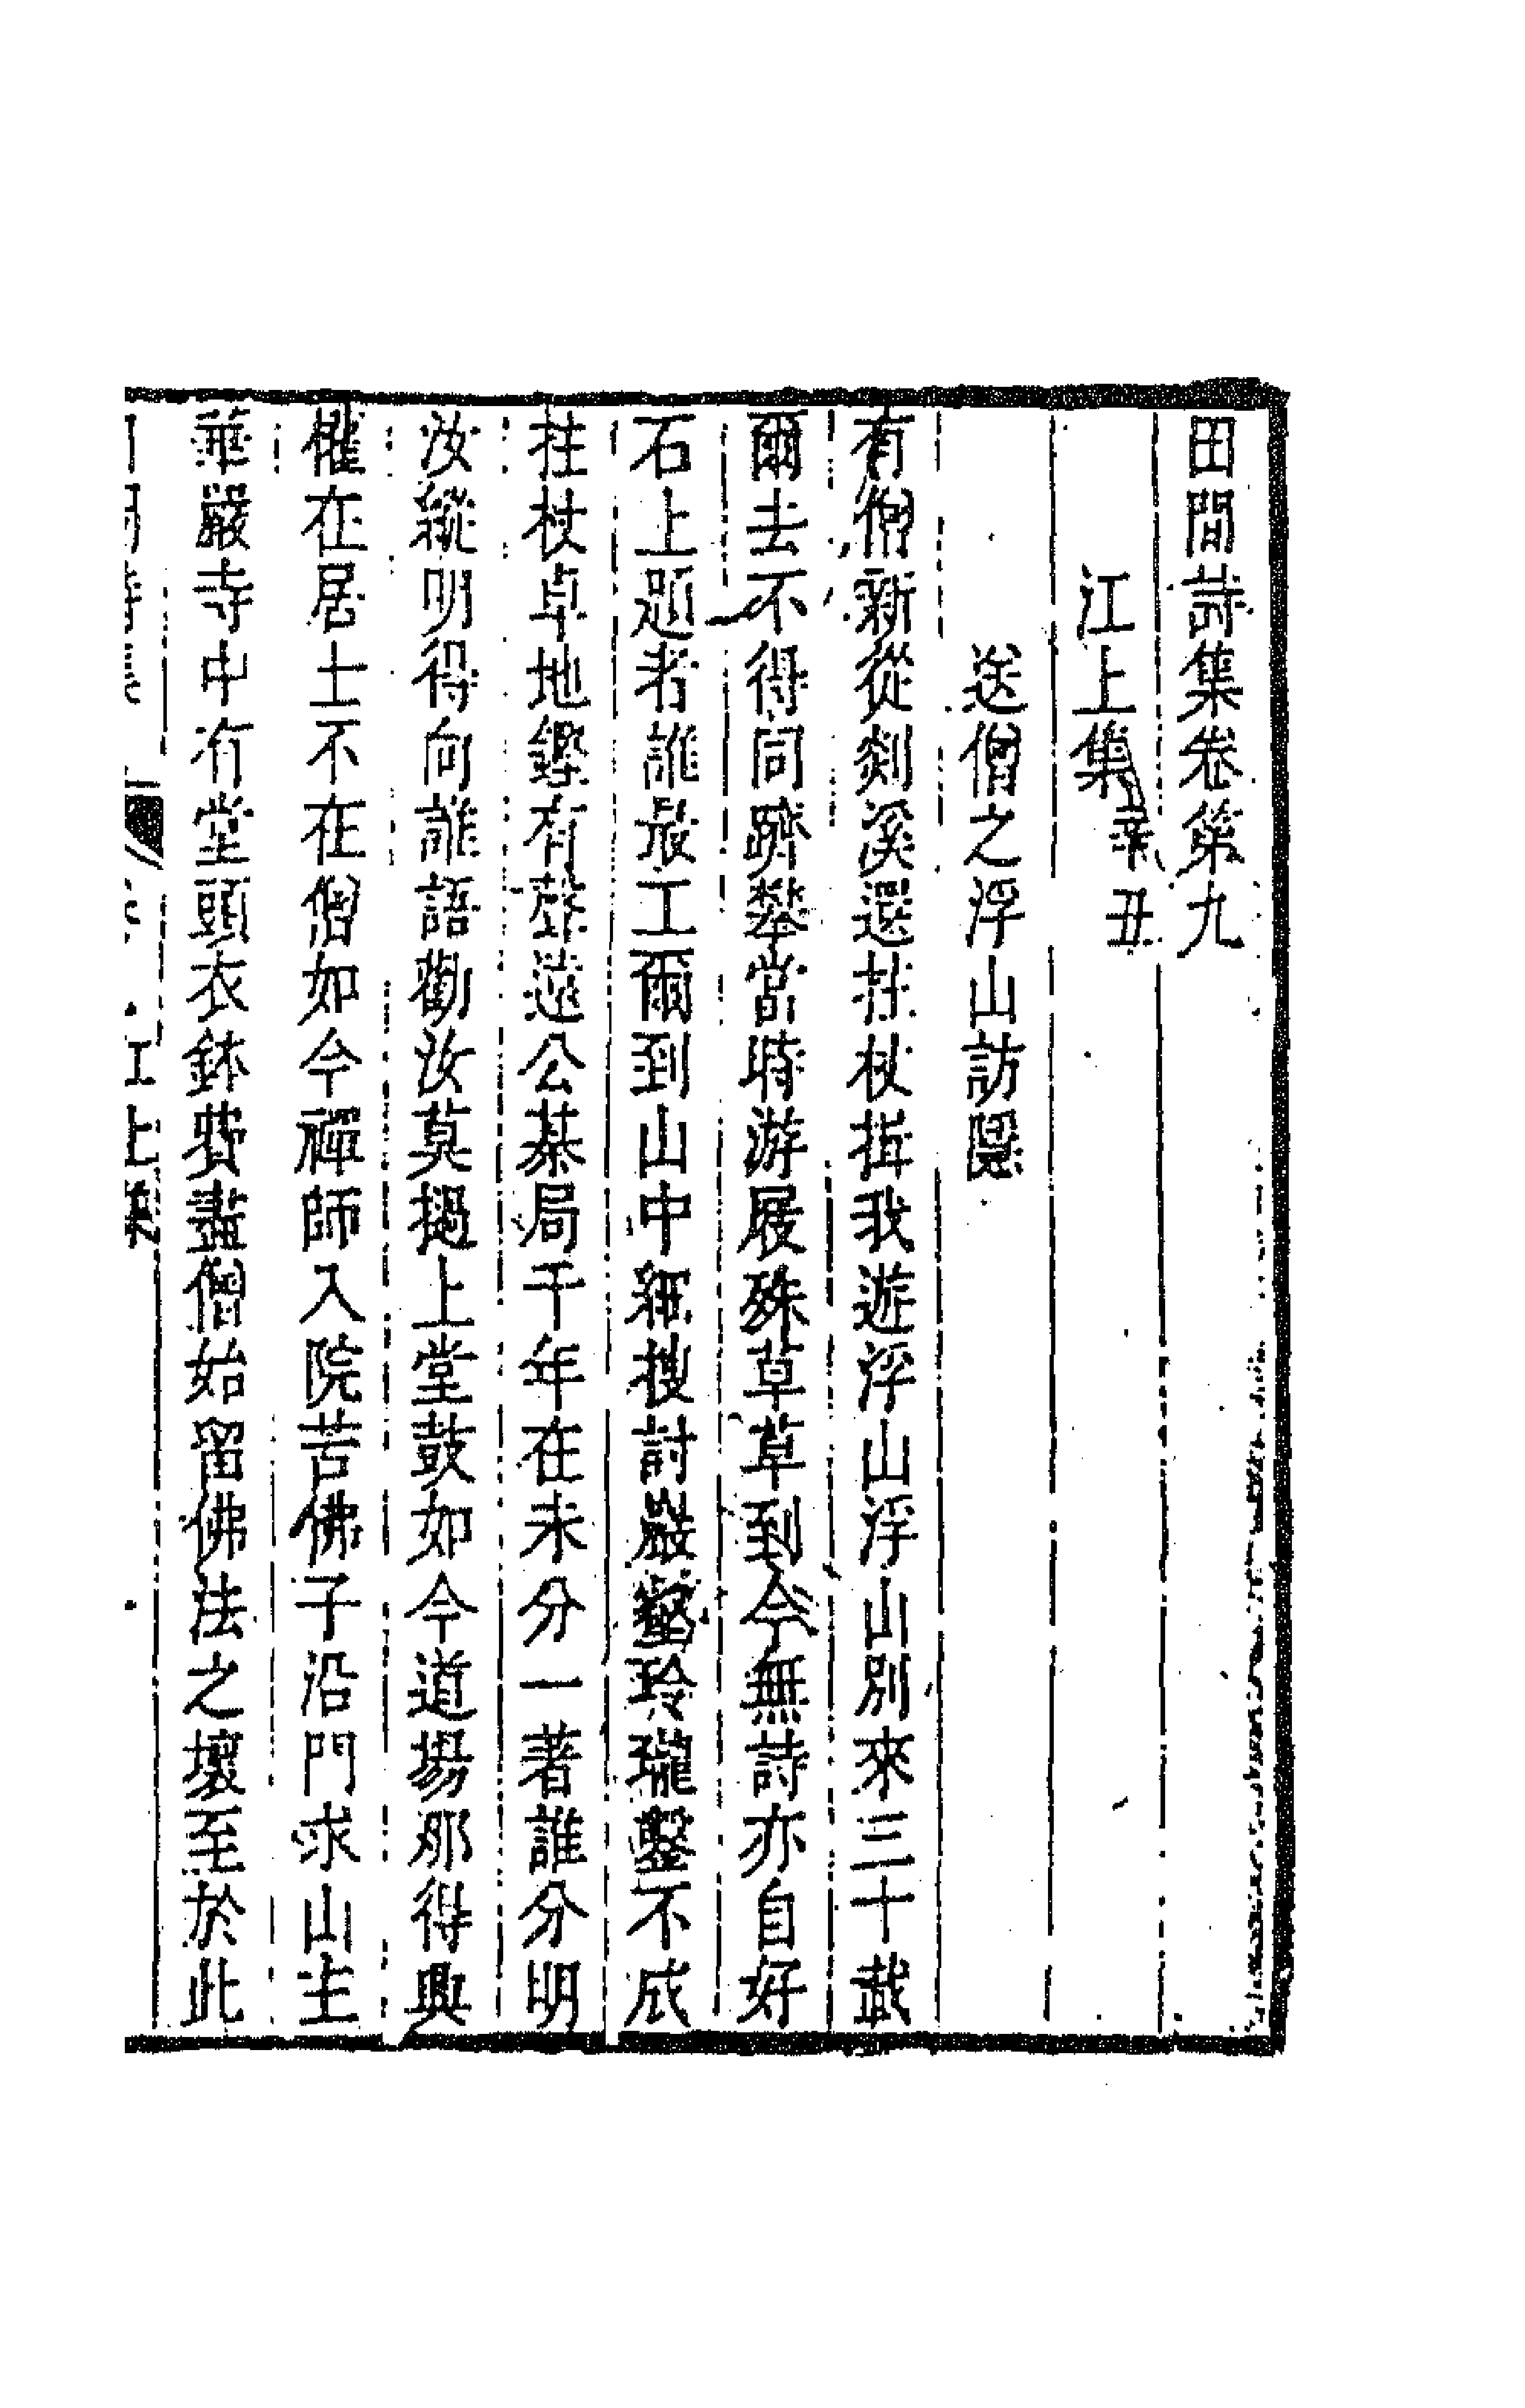 田間詩集卷第九
江上集辛丑
送僧之浮山訪隱
有僧新從剡溪還拄杖揖我遊浮山浮山別來三十載
爾去不得同躋攀當時游屐殊草草到今無詩亦自好
石上題者誰最工爾到山中細搜討巖壑玲瓏鑿不成
拄杖卓地鏗有聲遠公棊局千年在未分一著誰分明
汝縱明得向誰語勸汝莫撾上堂鼓如今道場那得興
權在居士不在僧如今禪師入院苦佛子沿門求山主
華嚴寺中有堂頭衣鉢費盡僧始留佛法之壞至於此
江上集